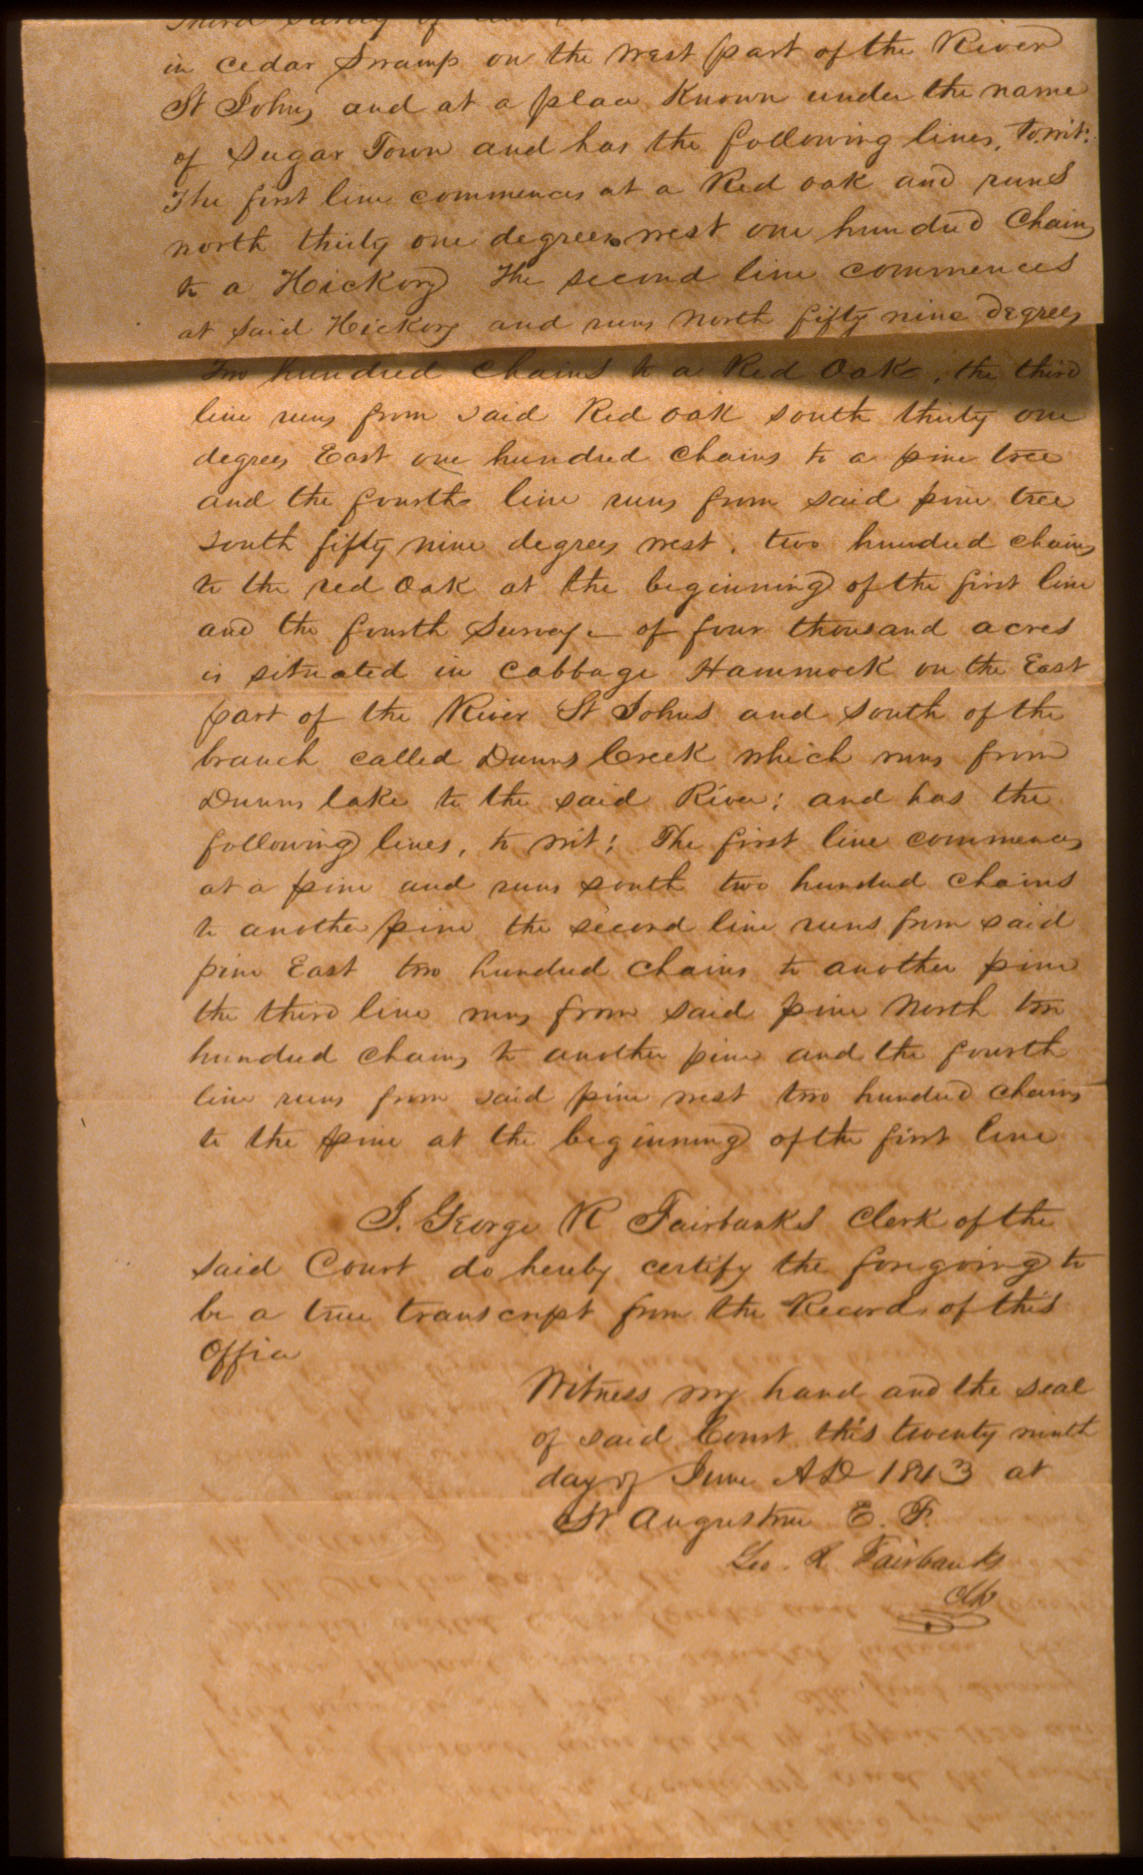 Third Survey of
in cedar Swamp on the west part of the River
St Johns and at a place Known under the name
of Sugar Town and has the following lines, towit:
The first line commences at a Red oak and runs
north thirty one degrees west one hundred Chains
to a Hickory The second line commences
at said Hickory and runs north fifty nine degrees
Two hundred chains to a Red Oak, the third
line runs from said Red oak south thirty one
degrees East one hundred chains to a pine tree
and the fourth line runs from said pine tree
south fifty nine degrees west, two hundred chains
to the red Oak at the beginning of the first line
and the fourth Survey of four thousand acres
is situated in Cabbage Hammock on the East
part of the River St Johns and south of the
branch called Dunns Creek which runs from
Dunns lake to the said River: and has the
following lines, to wit: The first line commences
at a pine and runs south two hundred chains
to another pine the second line runs from said
pine East two hundred chains to another pine
the third line runs from said pine North two
hundred chains to another pine and the fourth
line runs from said pine west two hundred chains
to the pine at the beginning of the first line
I. George R Fairbanks Clerk of the
said Court do hereby certify the foregoing to
be a true transcript from the Records of this
Office
Witness my hand and the seal
of said Court this twenty ninth
day of June AD 1843 at
St Augustine E. F.
Geo. R. Fairbanks
Clk